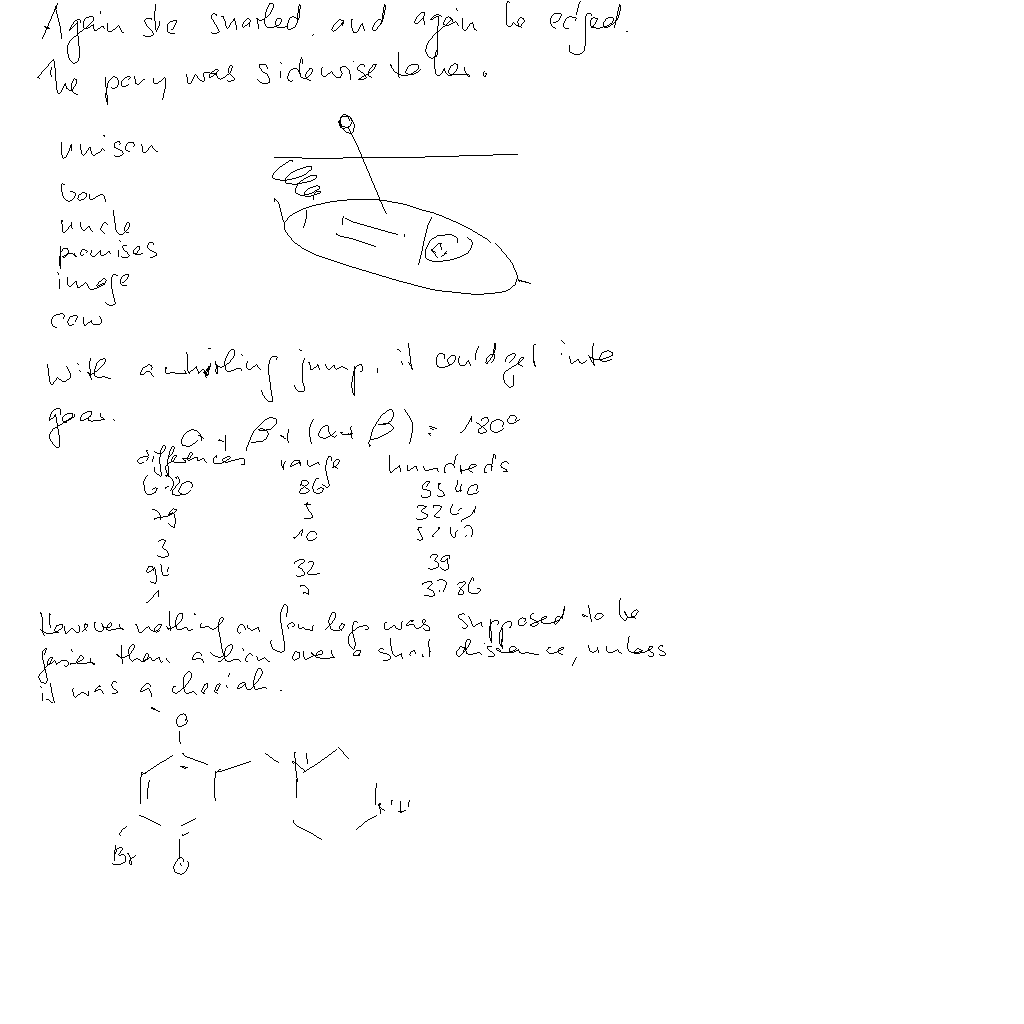 Again she snarled, and again he edged.
The pony was sidewise to her.
unison
uncle
promises
image
cow
With a whirling jump, it could get into
gear.
α + β + (α + β) = 180°
differences range hundreds
86
29 5 3241
3 10
94 32 39
1 2 3786
However nothing on four legs was supposed to be
faster than a lion over a short distance, unless
it was a cheetah.
O
Br
O